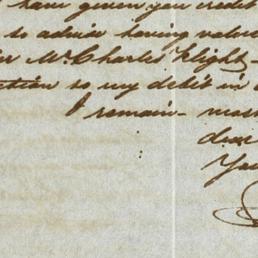 have given you credit
so advise having value
Mr. Charles Flight
so my debit in
I remain
dear